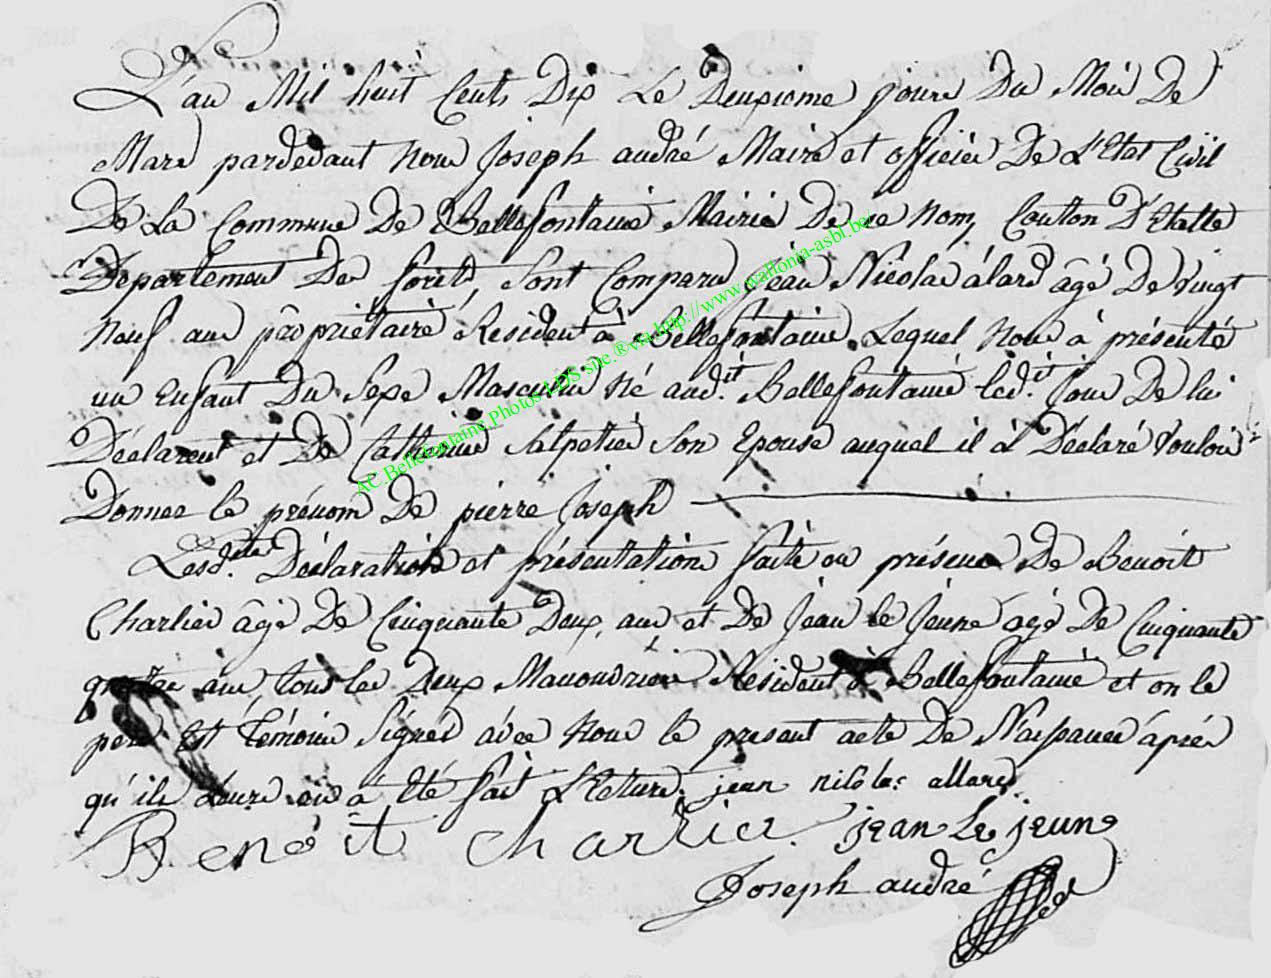 L'an Mil huit Cents Dix Le Deuxieme jours Du Mois De
Mars pardevant nous Joseph andré Maire et officier De L'Etat Civil
De La Commune De Bellefontaine Mairie De ce nom, Canton D'Etalle
Departement Des forêts, sont Comparu Jean Nicolas alard âgé De vingt
neuf ans propriétaire Résident à Bellefontaine Lequel nous à présenté
un Enfant Du Sexe Masculin né aud.it Bellefontaine led.it Jour De lui
Déclarent et De Catherine Salpetier Son Epouse auquel il à Déclaré Vouloir
Donner le prénom De pierre Joseph
Lesd.ites Déclaration et présentation faite en présence De Benoit
Charlier âgé De Cinquante Deux ans et De Jean le Jeune agé De Cinquante
quatre ans, tous les Deux Manouvriers Résident à Bellefontaine et on le
pere Et témoins signés avec nous le présent acte De Naissance après
qu'ils Leurs en à été fait L'Ecture. jean nicolas allard
Benoit charlier. jean Le jeune
Joseph andré
AC.Bellefontaine.Photos LDS site.®via.http://www.wallonia-asbl.be